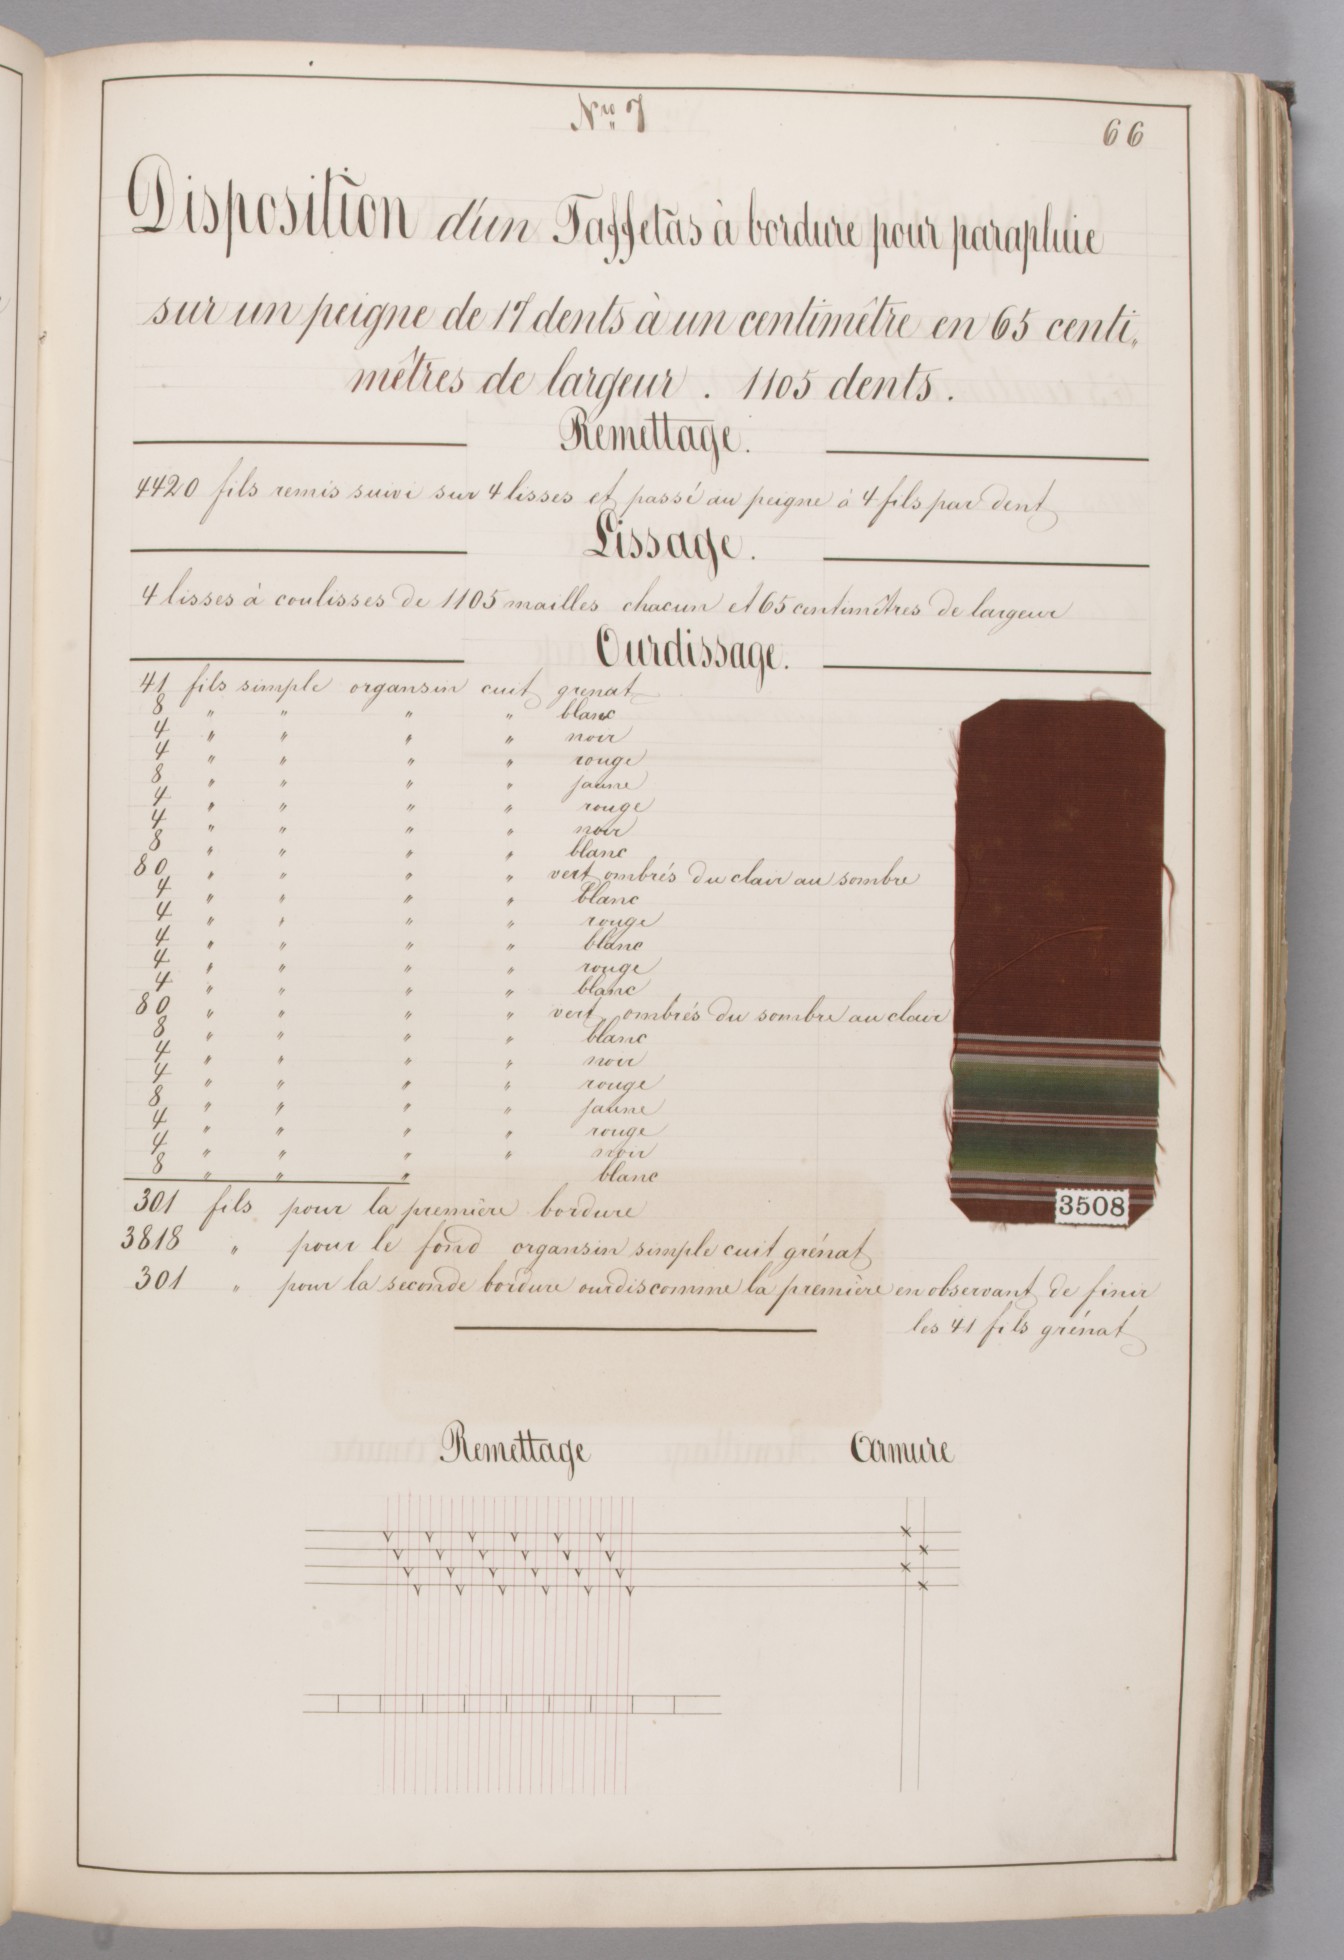 Nro 7
66
Disposition d'un Taffetas à bordure pour parapluie
sur un peigne de 17 dents à un centimêtre en 65 centi„
mêtres de largeur . 1105 dents .
Remettage.
4420 fils remis suivi sur 4 lisses et passé au peigne à 4 fils par dent
Lissage.
4 lisses à coulisses de 1105 mailles chacun et 65 centimêtres de largeur
Ourdissage.
41 fils simple organsin cuit grenat
8 " " " " blanc
4 " " " " noir
4 " " " " rouge
8 " " " " jaune
4 " " " " rouge
4 " " " " noir
8 " " " " blanc
80 " " " " vert ombrés du clair au sombre
4 " " " " blanc
4 " " " " rouge
4 " " " " blanc
4 " " " " rouge
4 " " " " blanc
80 " " " " vert ombrés du sombre au clair
8 " " " " blanc
4 " " " " noir
4 " " " " rouge
8 " " " " jaune
4 " " " " rouge
4 " " " " noir
8 " " " blanc
301 fils pour la première bordure
3818 " pour le fond organsin simple cuit grénat
301 " pour la seconde bordure ourdis comme la première en observant de finir
les 41 fils grénat
3508
Remettage Armure